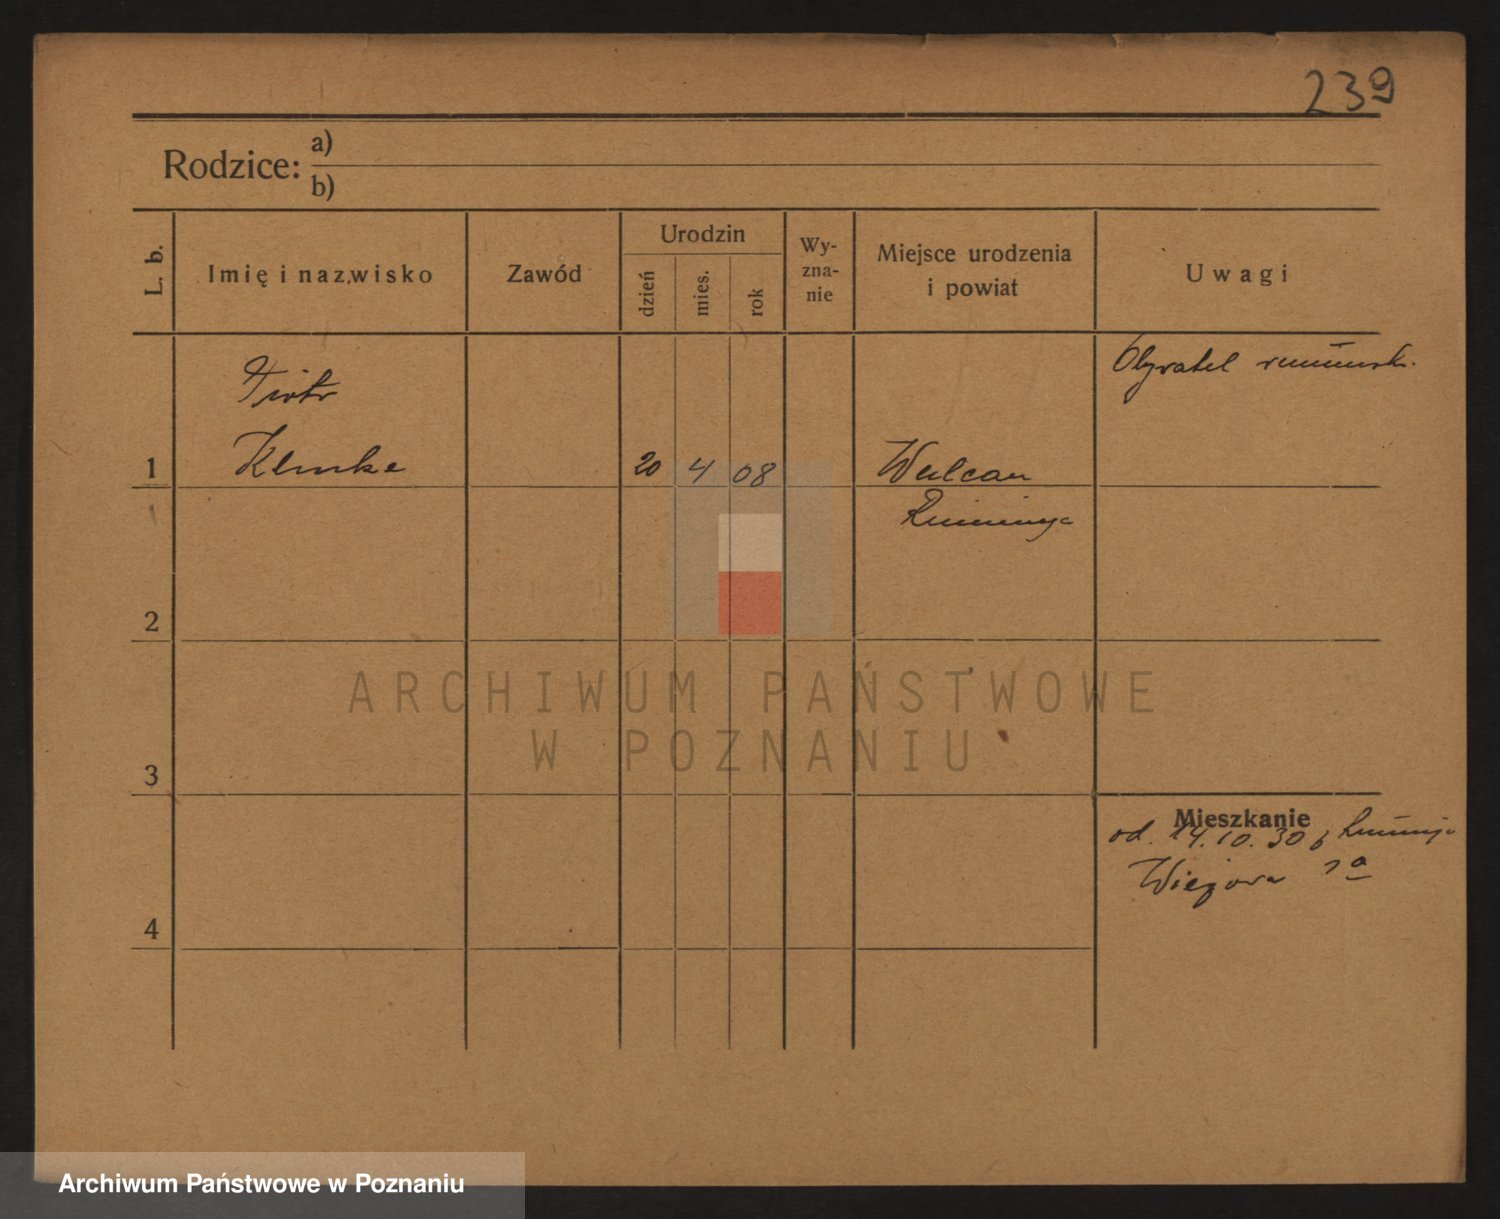 239
Rodzice: a)
b)
L. b.
Imię i nazwisko
Zawód
Urodzin
dzień
mies.
rok
Wy-
zna-
nie
Miejsce urodzenia
i powiat
Uwagi
Obywatel rumunsk.
Piotr
1 Klimke 20 4 08 Wulcan
Rumunja
2
ARCHIWUM PAŃSTWOWE
W POZNANIU
3
Mieszkanie
od. 14.10.30 z Rumunji
4
Archiwum Państwowe w Poznaniu